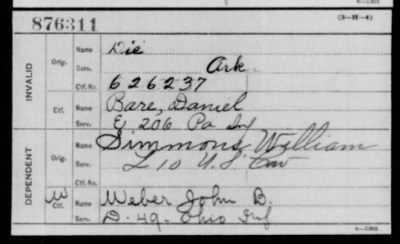 876311 (3-H-4)
INVALID
Orig. Name Die
Serv. Ark
Ctf. No. 626237
Ctf. Name Bare, Daniel
Serv. E, 206 Pa Inf
DEPENDENT
Orig. Name Simmons, William
Serv. L 10 U.S. Cav.
Ctf. No.
W Ctf. Name Weber John B.
Serv. D. 49. Ohio Inf